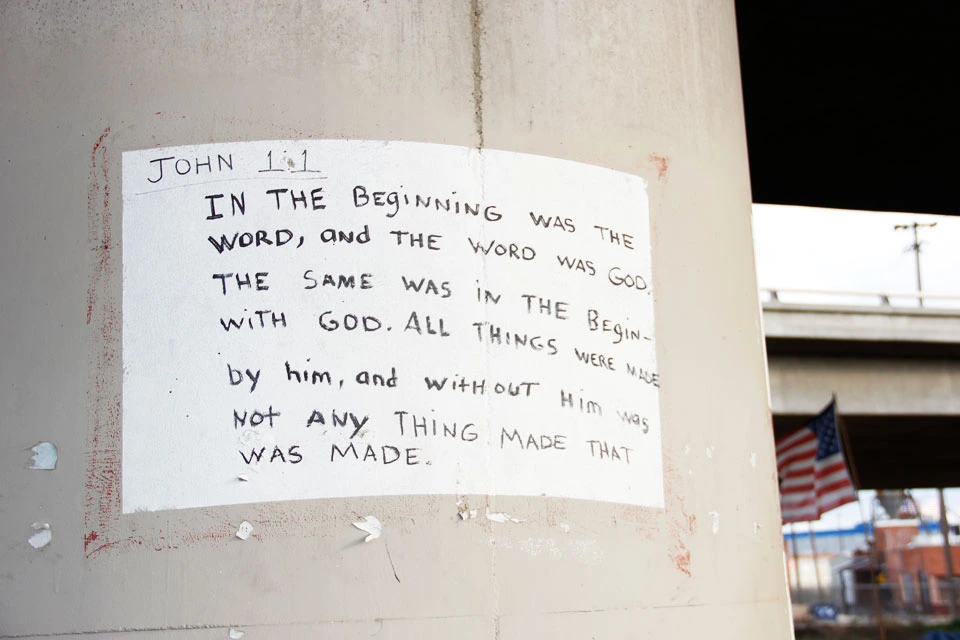 JOHN 1:1
IN THE BegiNNiNG WAS THE
WORD, and THE WORD WAS GOD.
THE SAME WAS iN THE Begin-
WiTH GOD. ALL THINGS WERE MADE
by him, and without Him was
Not ANy THiNG MADE THAT
WAS MADE.